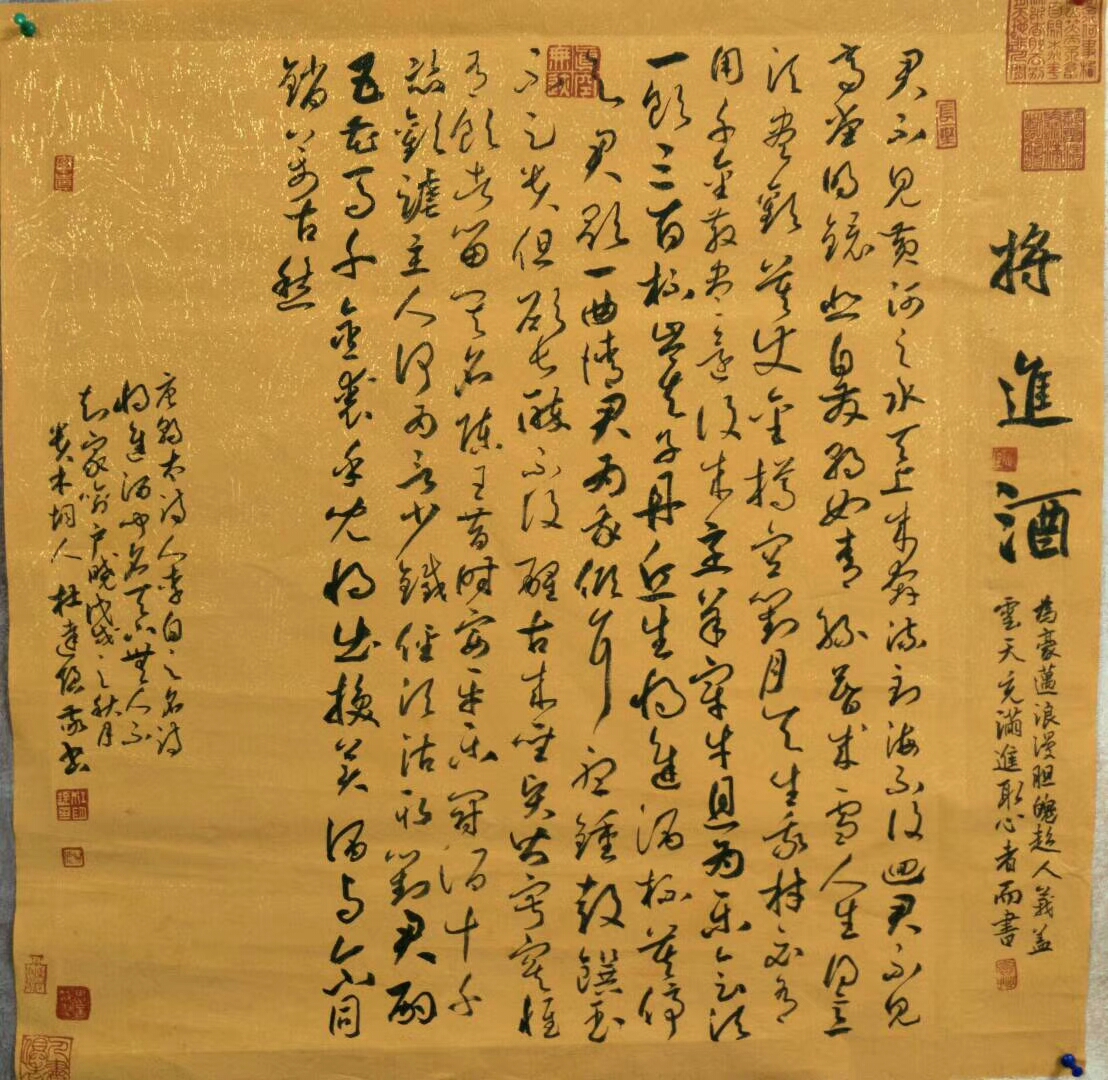 將進酒
為豪邁浪漫胆魄超人義蓋
雲天充滿進取心者而書
君不見黃河之水天上來奔流到海不復迴君不見
高堂明鏡悲白髮朝如青絲暮成雪人生得意
須盡歡莫使金樽空對月天生我材必有
用千金散盡還復來烹羊宰牛且為樂會須
一飲三百杯岑夫子丹丘生將進酒杯莫停
與君歌一曲請君為我傾耳聽鍾鼓饌玉
不足貴但願長醉不復醒古來聖賢皆寂寞惟
有飲者留其名陳王昔時宴平樂斗酒十千
恣歡謔主人何為言少錢徑須沽取對君酌
五花馬千金裘呼兒將出換美酒與爾同
銷萬古愁
唐朝大诗人李白之名诗
將進酒聞名天下無人不
知家喻户曉戊戌之秋月
木垌人杜達書